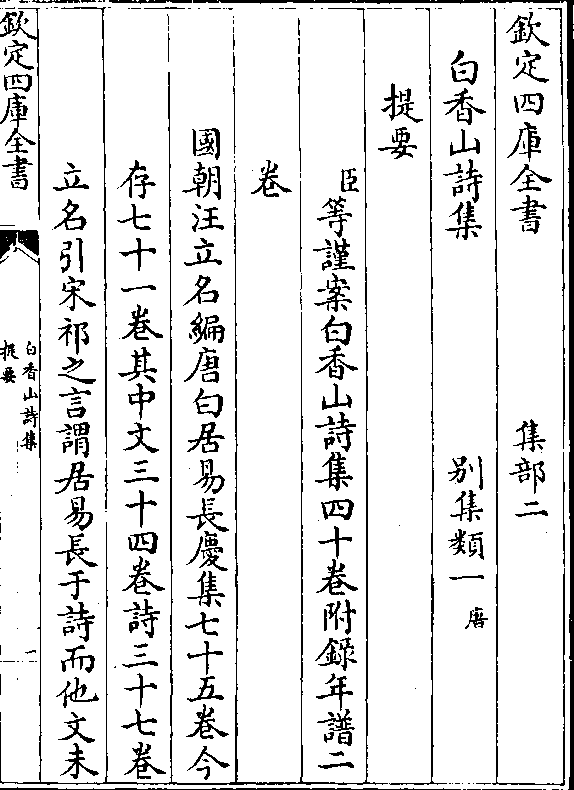 欽定四庫全書 集部二
白香山詩集 别集類一 唐
提要
臣等謹案白香山詩集四十卷附錄年譜二
卷
國朝汪立名編唐白居易長慶集七十五卷今
存七十一卷其中文三十四卷詩三十七卷
立名引宋祁之言謂居易長于詩而他文未
欽定四庫全書
白香山詩集
提要
一